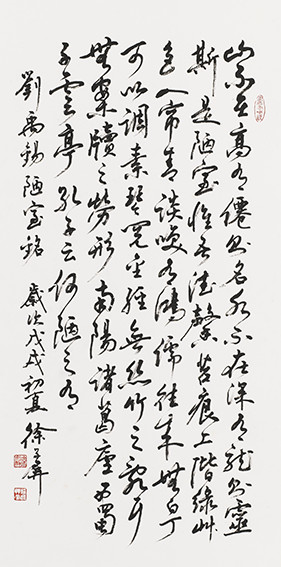 山不在高有僊則名水不在深有龍則靈
斯是陋室惟吾德馨苔痕上階綠艸
色入帘青談咲有鴻儒往来無白丁
可以調素琴閱金經無絲竹之亂耳
無案牘之勞形南陽諸葛廬西蜀
子雲亭孔子云何陋之有
劉禹錫陋室銘 歲次戊戌初夏 徐